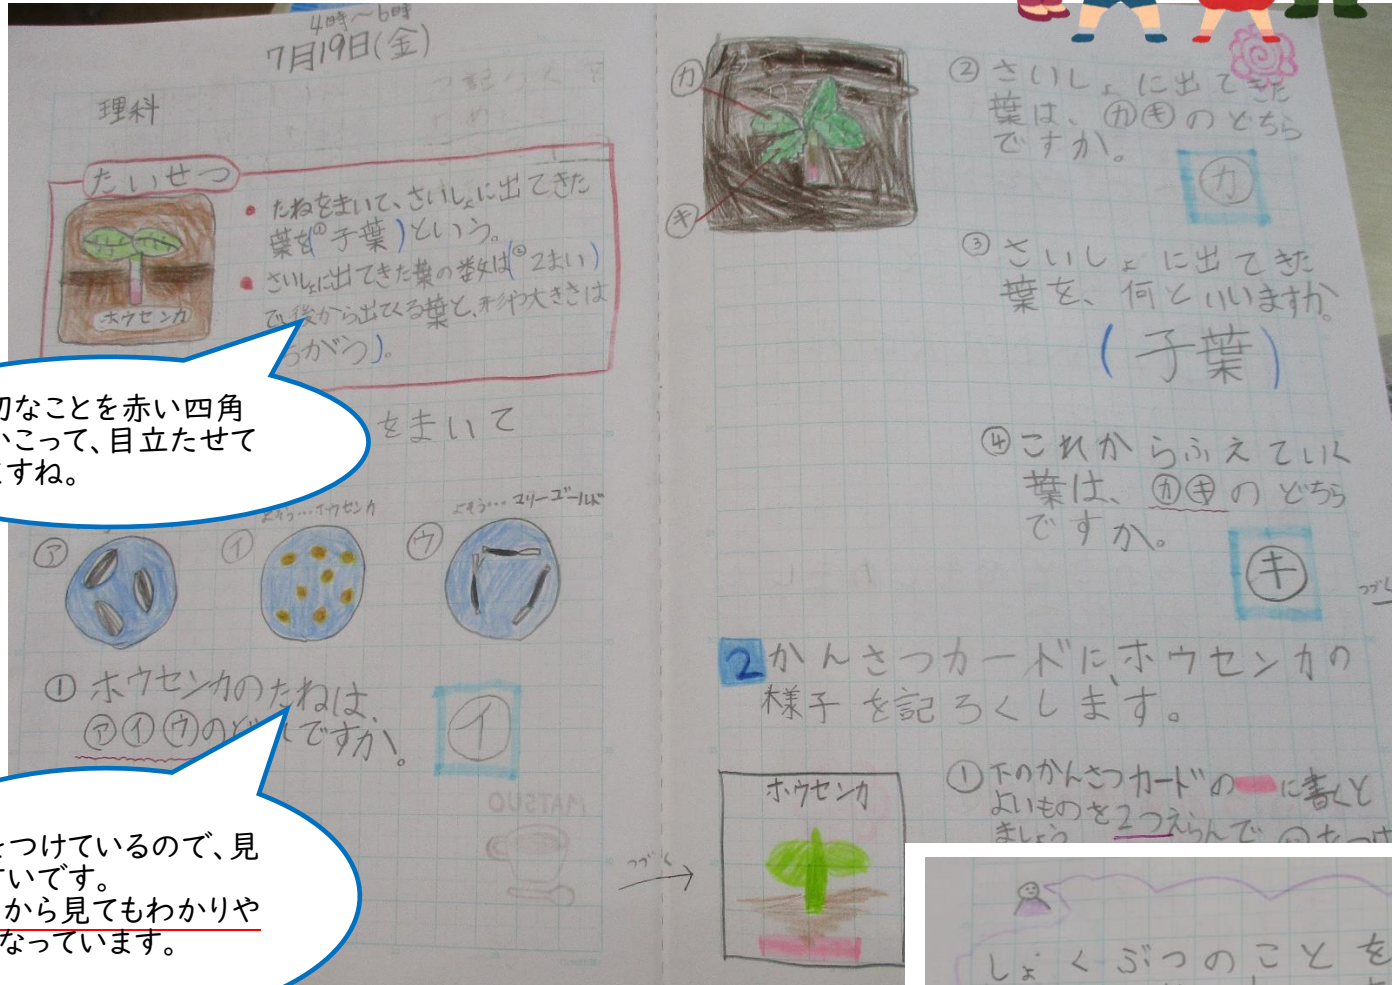 4時～6時
7月19日(金)
理科
たいせつ
・たねをまいて、さいしょに出てきた
葉を(①子葉)という。
・さいしょに出てきた葉の数は(②2まい)
で、後から出てくる葉と、形や大きさは
がう)。
ホウセンカ
切なことを赤い四角
かこって、目立たせて
ますね。
をまいて
よそう…ホウセンカ
よそう…マリーゴールド
㋐
㋑
㋒
①ホウセンカのたねは、
㋐㋑㋒のどれですか。
㋑
をつけているので、見
すいです。
から見てもわかりや
なっています。
MATSUO
つづく
㋕
㋖
②さいしょに出てきた
葉は、㋕㋖のどちら
ですか。
㋕
③さいしょに出てきた
葉を、何といいますか。
(子葉)
④これからふえていく
葉は、㋕㋖のどちら
ですか。
㋖
つづく
2 かんさつカードに、ホウセンカの
様子を記ろくします。
ホウセンカ
①下のかんさつカードの に書くと
よいものを2つえらんで
ましょう
しょくぶつのことを